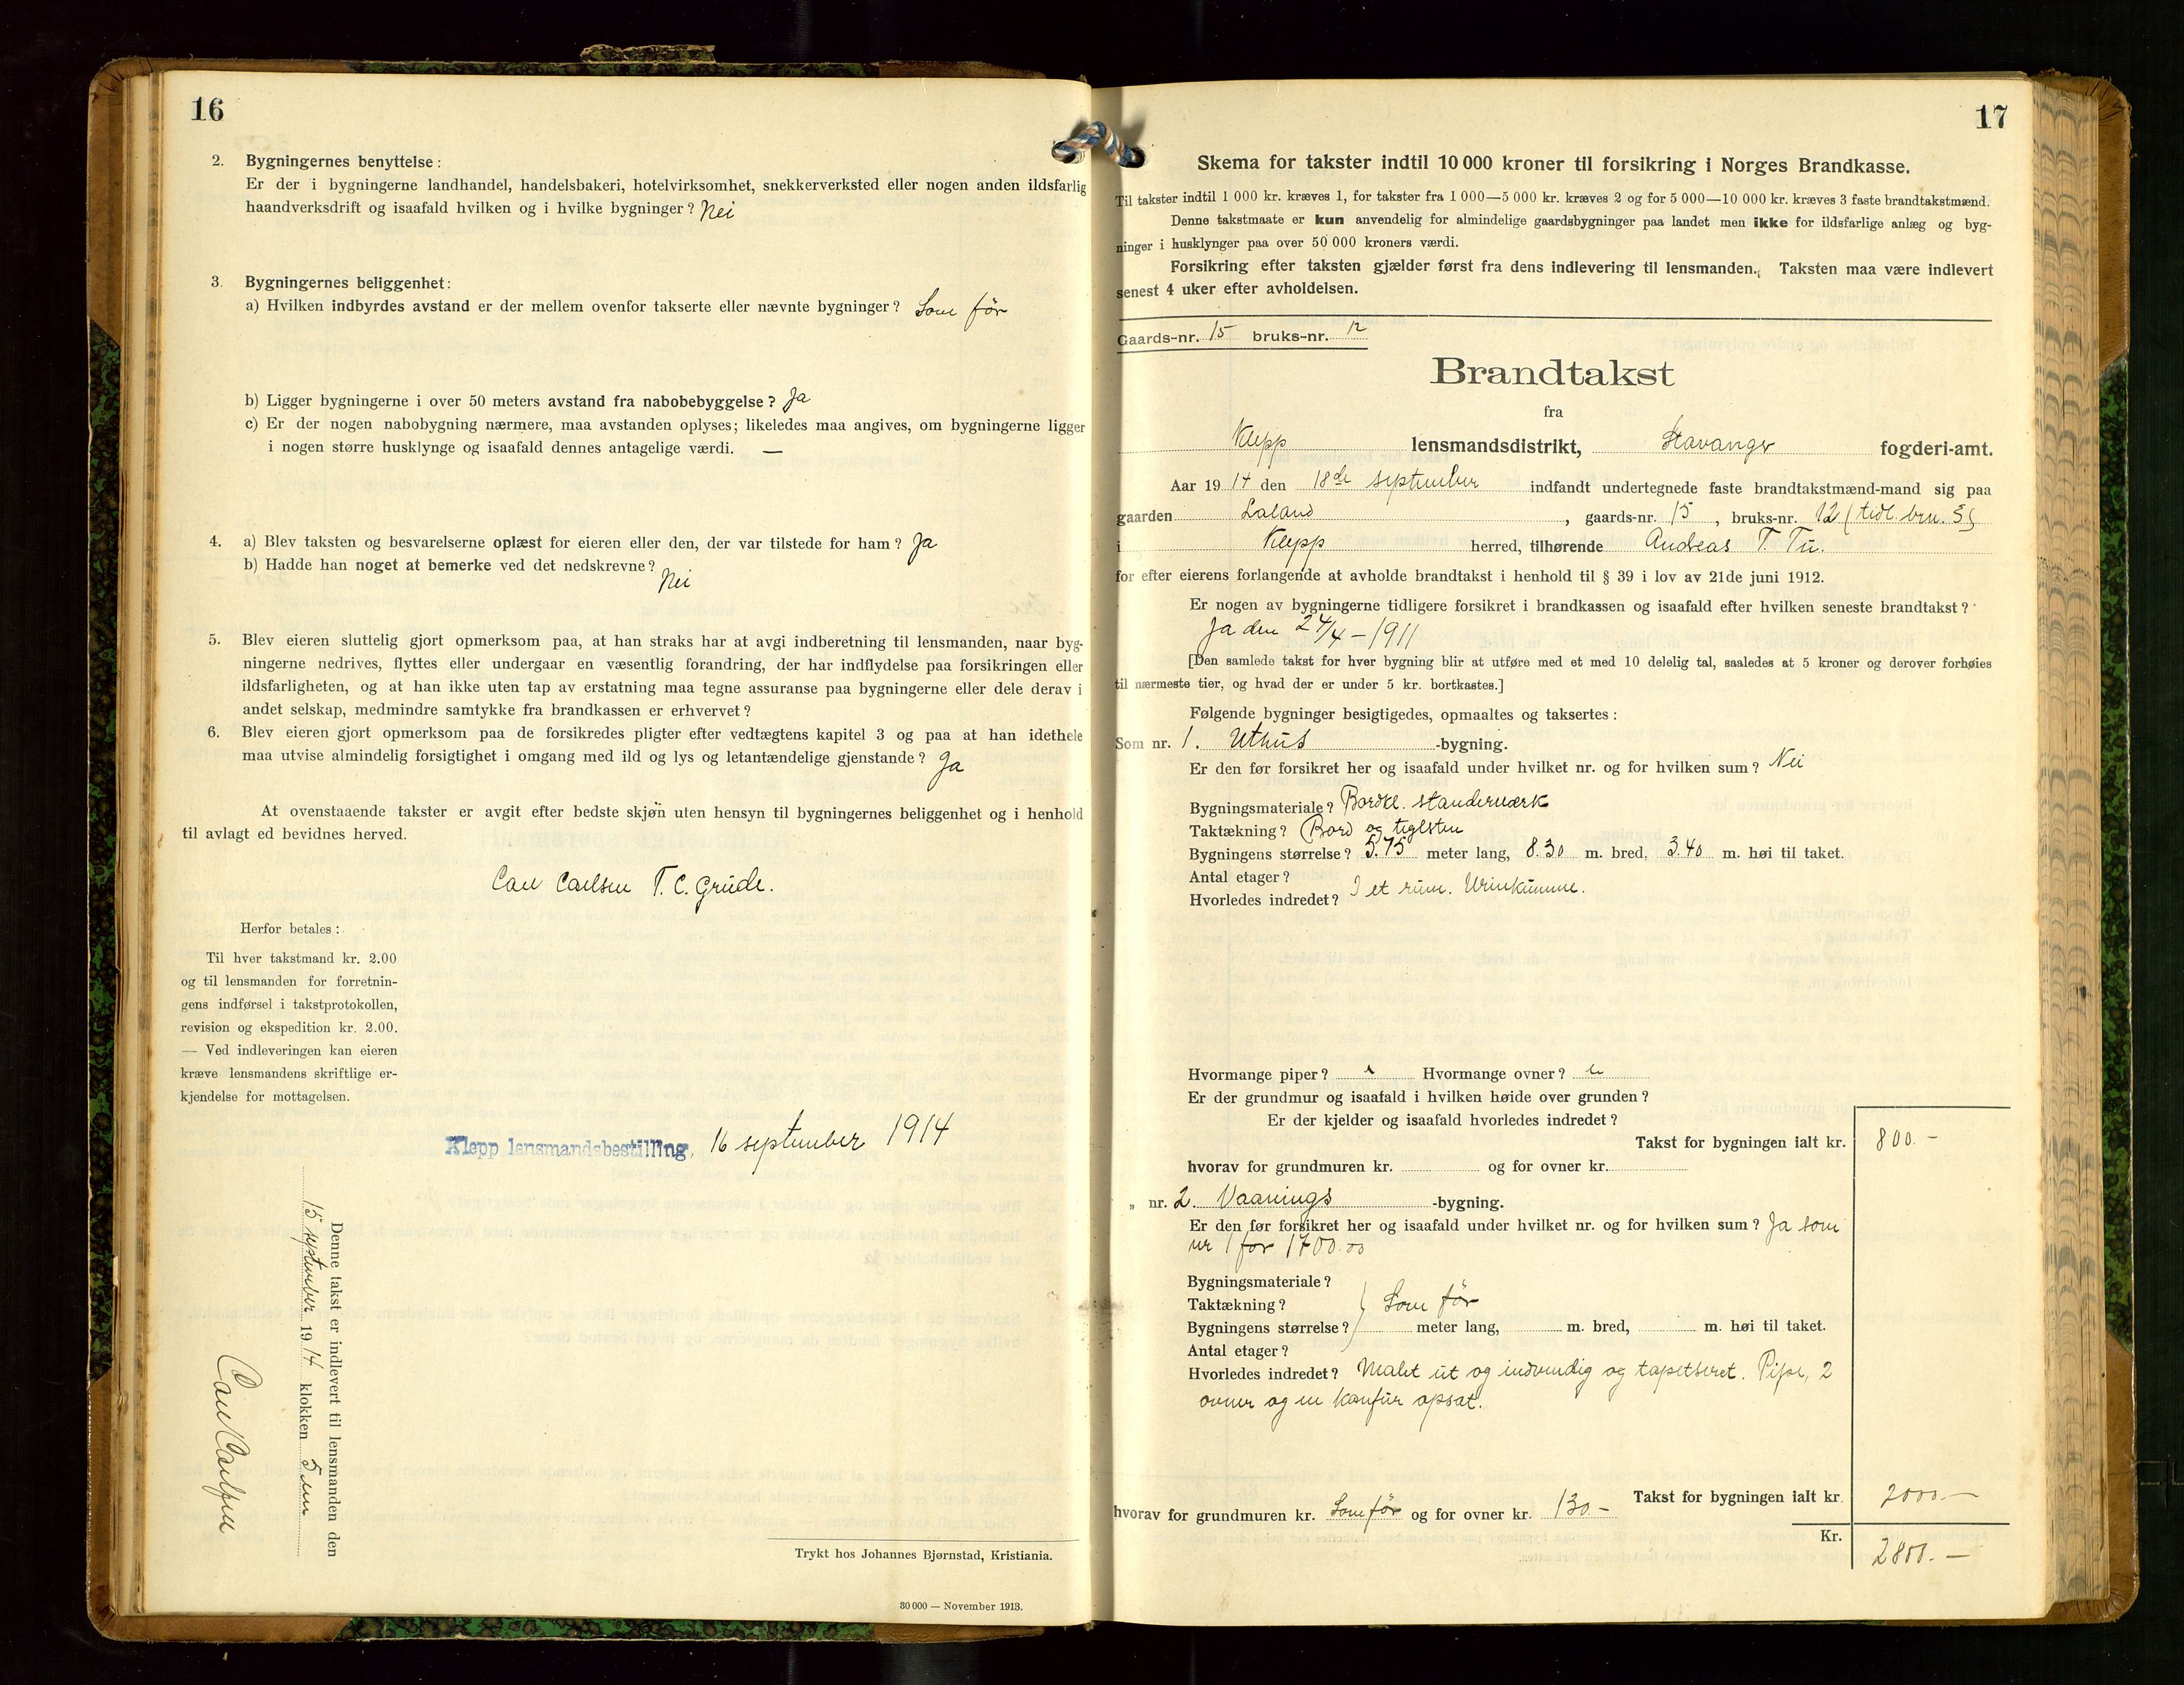 16
2. Bygningernes benyttelse:
Er der i bygningerne landhandel, handelsbakeri, hotelvirksomhet, snekkerverksted eller nogen anden ildsfarlig
haandverksdrift og isaafald hvilken og i hvilke bygninger? Nei
3. Bygningernes beliggenhet:
a) Hvilken indbyrdes avstand er der mellem ovenfor takserte eller nævnte bygninger? Som før
b) Ligger bygningerne i over 50 meters avstand fra nabobebyggelse? Ja
c) Er der nogen nabobygning nærmere, maa avstanden oplyses; likeledes maa angives, om bygningerne ligger
i nogen større husklynge og isaafald dennes antagelige værdi. —
4. a) Blev taksten og besvarelserne oplæst for eieren eller den, der var tilstede for ham? Ja
b) Hadde han noget at bemerke ved det nedskrevne?
Nei
5. Blev eieren sluttelig gjort opmerksom paa, at han straks har at avgi indberetning til lensmanden, naar byg-
ningerne nedrives, flyttes eller undergaar en væsentlig forandring, der har indflydelse paa forsikringen eller
ildsfarligheten, og at han ikke uten tap av erstatning maa tegne assuranse paa bygningerne eller dele derav i
andet selskap, medmindre samtykke fra brandkassen er erhvervet?
6. Blev eieren gjort opmerksom paa de forsikredes pligter efter vedtægtens kapitel 3 og paa at han idethele
maa utvise almindelig forsigtighet i omgang med ild og lys og letantændelige gjenstande? Ja
At ovenstaaende takster er avgit efter bedste skjøn uten hensyn til bygningernes beliggenhet og i henhold
til avlagt ed bevidnes herved.
Carl Carlsen T. C. Grude.
Herfor betales:
Til hver takstmand kr. 2.00
og til lensmanden for forretnin-
gens indførsel i takstprotokollen,
revision og ekspedition kr. 2.00.
— Ved indleveringen kan eieren
kræve lensmandens skriftlige er-
kjendelse for mottagelsen.
Klepp lensmandsbestilling, 16 september 1914
Denne takst er indlevert til lensmanden den
15 september 1914 klokken 5 em
Carl Carlsen
Trykt hos Johannes Bjørnstad, Kristiania.
30 000 — November 1913.
17
Skema for takster indtil 10 000 kroner til forsikring i Norges Brandkasse.
Til takster indtil 1 000 kr. kræves 1, for takster fra 1 000—5 000 kr. kræves 2 og for 5 000—10 000 kr. kræves 3 faste brandtakstmænd.
Denne takstmaate er kun anvendelig for almindelige gaardsbygninger paa landet men ikke for ildsfarlige anlæg og byg-
ninger i husklynger paa over 50 000 kroners værdi.
Forsikring efter taksten gjælder først fra dens indlevering til lensmanden. Taksten maa være indlevert
senest 4 uker efter avholdelsen.
Gaards-nr. 15 bruks-nr. 12
Brandtakst
fra
Klepp lensmandsdistrikt, Stavanger fogderi-amt.
Aar 1914 den 18de september indfandt undertegnede faste brandtakstmænd-mand sig paa
gaarden Laland, gaards-nr. 15, bruks-nr. 12 (tidl. brn. 5)
i Klepp herred, tilhørende Andreas T. Tu.
for efter eierens forlangende at avholde brandtakst i henhold til § 39 i lov av 21de juni 1912.
Er nogen av bygningerne tidligere forsikret i brandkassen og isaafald efter hvilken seneste brandtakst?
Ja den 24/4 – 1911
[Den samlede takst for hver bygning blir at utføre med et med 10 delelig tal, saaledes at 5 kroner og derover forhøies
til nærmeste tier, og hvad der er under 5 kr. bortkastes.]
Følgende bygninger besigtigedes, opmaaltes og taksertes:
Som nr. 1. Uthus -bygning.
Er den før forsikret her og isaafald under hvilket nr. og for hvilken sum? Nei
Bygningsmateriale? Bordkl. standerværk
Taktækning? Bord og teglsten
Bygningens størrelse? 5.75 meter lang, 8.30 m. bred, 3.40 m. høi til taket.
Antal etager?
Hvorledes indredet? I et rum. Urinkumme.
Hvormange piper? Hvormange ovner?
Er der grundmur og isaafald i hvilken høide over grunden?
Er der kjelder og isaafald hvorledes indredet?
Takst for bygningen ialt kr. 800.–
hvorav for grundmuren kr. og for ovner kr.
„ nr. 2. Vaanings -bygning.
Er den før forsikret her og isaafald under hvilket nr. og for hvilken sum? Ja som
nr 1 for 1700.00
Bygningsmateriale?
Taktækning? Som før
Bygningens størrelse? meter lang, m. bred, m. høi til taket.
Antal etager?
Hvorledes indredet? Malet ut og indvendig og tapetseret. Pipe, 2
ovner og en komfur opsat.
Takst for bygningen ialt kr. 2000.—
hvorav for grundmuren kr. Som før og for ovner kr. 130.–
Kr. 2800.—